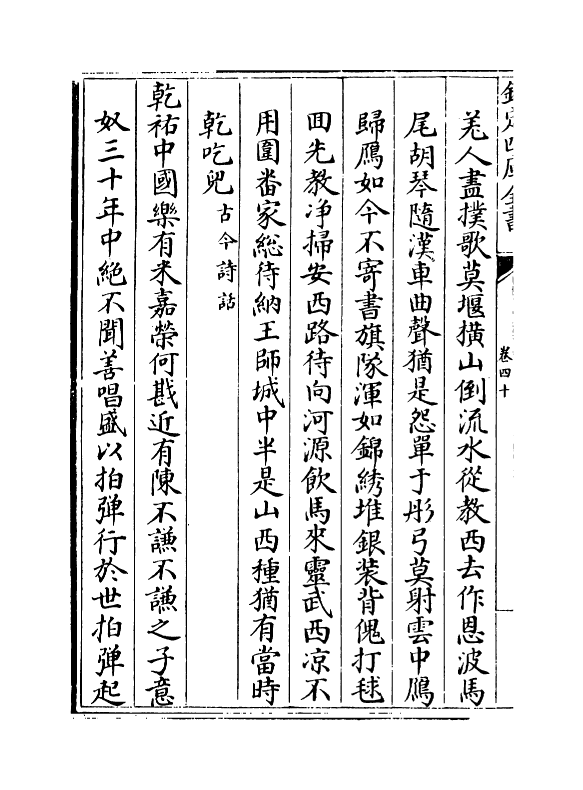 欽定四庫全書
卷四十
羌人盡撲歌莫堰横山倒流水從教西去作恩波馬
尾胡琴隨漢車曲聲猶是怨單于彤弓莫射雲中鴈
歸鴈如今不寄書旗隊渾如錦綉堆銀装背傀打毬
囬先教净掃安西路待向河源飲馬來靈武西凉不
用圍畨家総待納王師城中半是山西種猶有當時
乾吃兒古今詩話
乾祐中國樂有米嘉榮何戡近有陳不謙不謙之子意
奴三十年中絶不聞善唱盛以拍弹行於世拍弹起